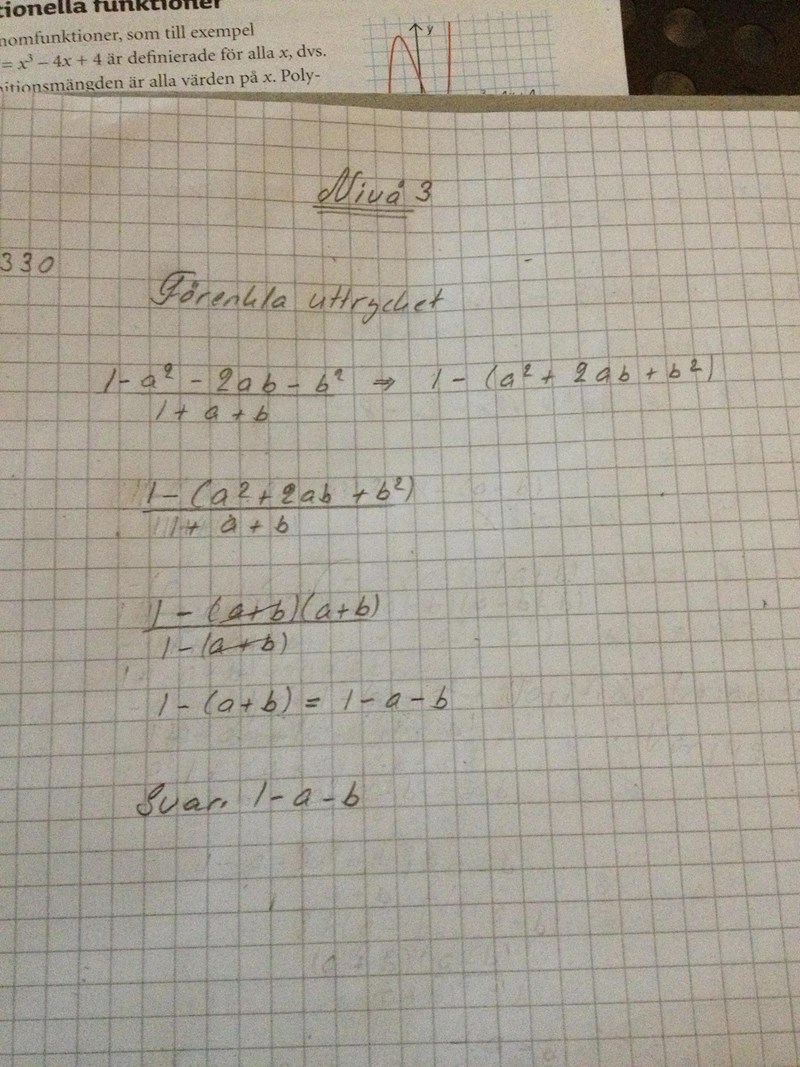 tionella funktioner
nomfunktioner, som till exempel
= x³ – 4x + 4 är definierade för alla x, dvs.
itionsmängden är alla värden på x. Poly-
y
Nivå 3
330
Förenkla uttrycket
1-a² - 2ab - b² ⇒ 1 - (a² + 2ab + b²)
1 + a + b
1 - (a² + 2ab + b²)
1 + a + b
1 - (a+b)(a+b)
1 - (a+b)
1 - (a+b) = 1 - a - b
Svar. 1 - a - b